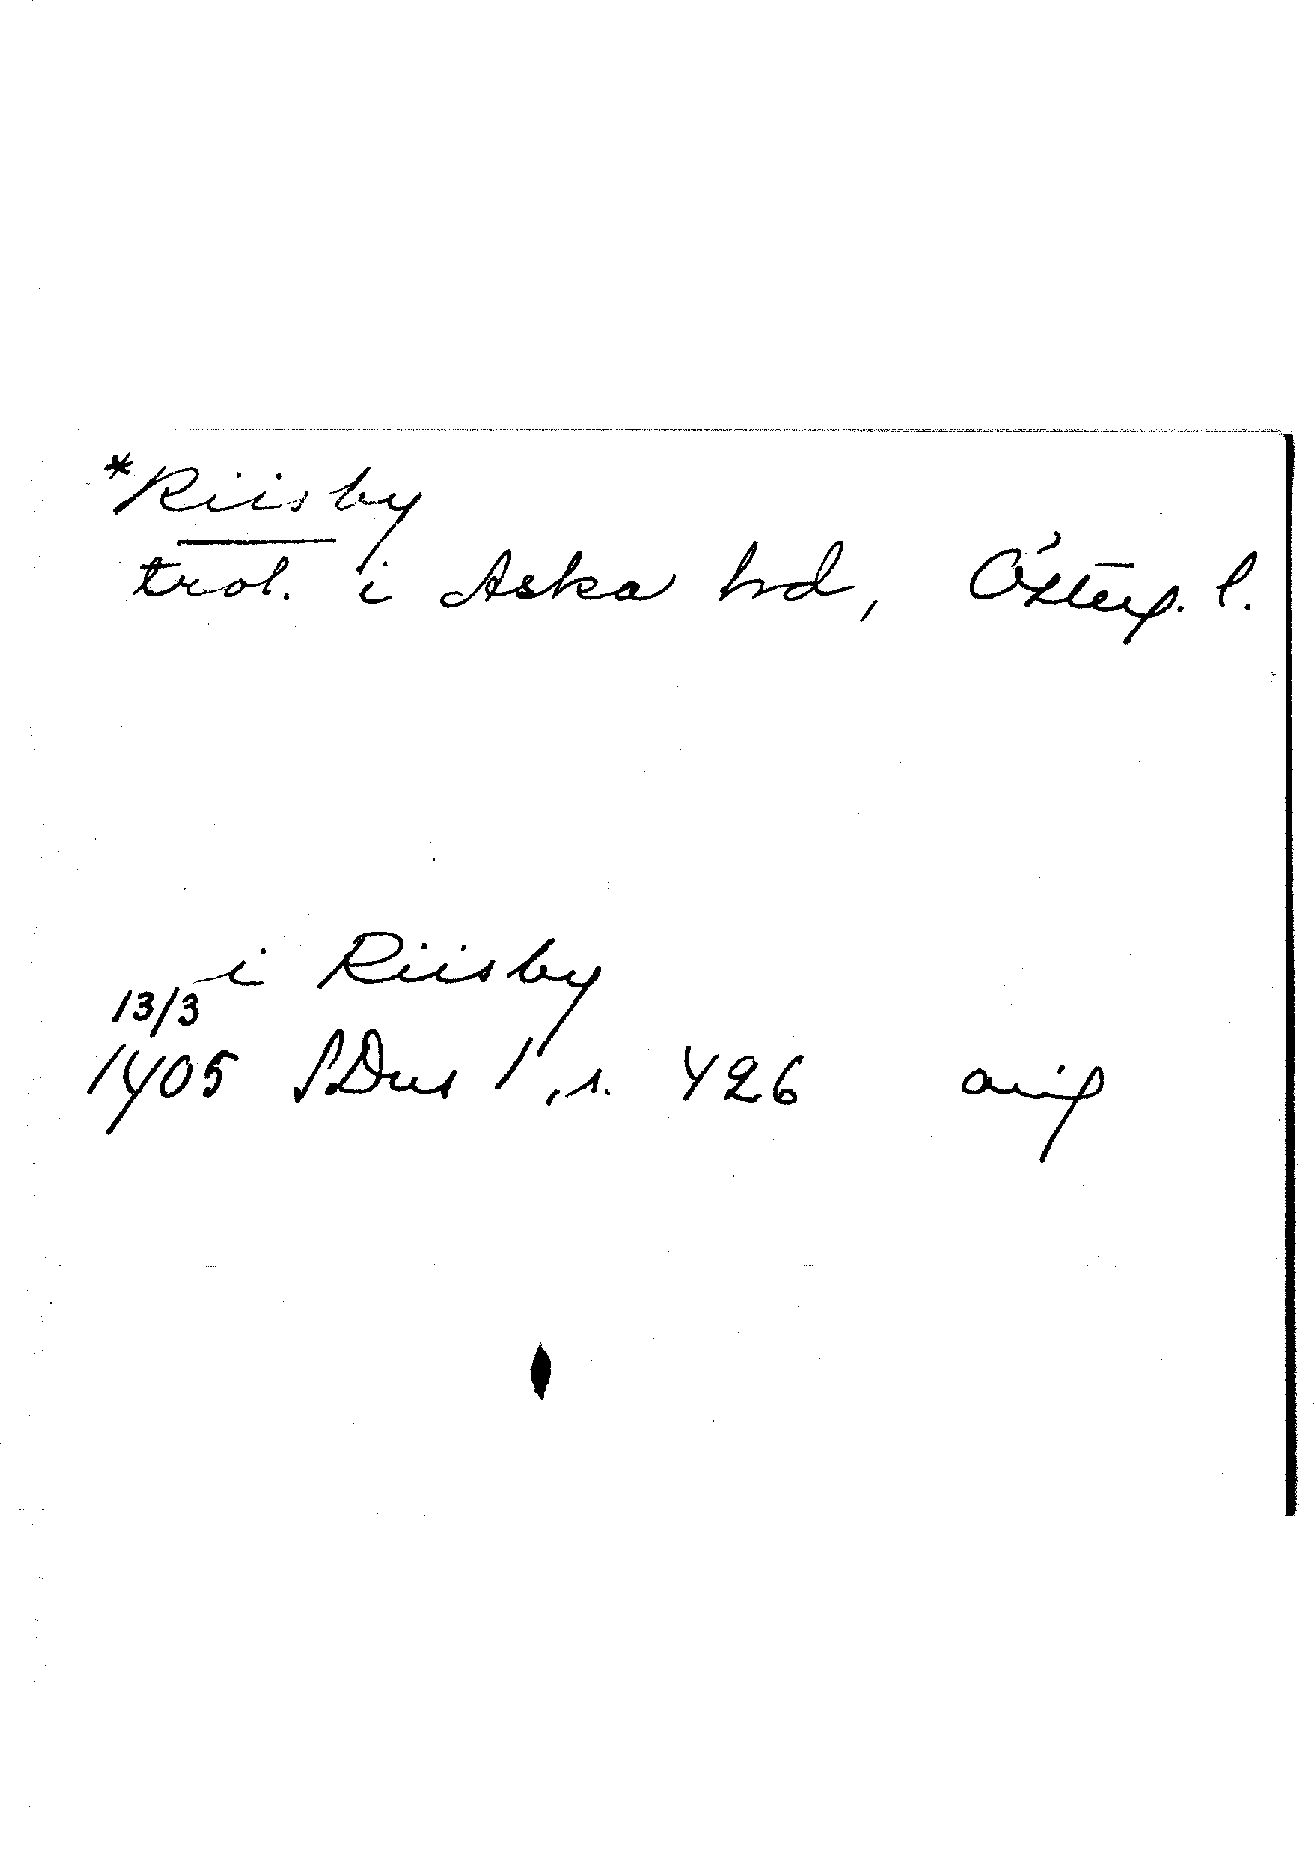 *Riisby
trol. i Aska hd, Österg. l.
i Riisby
13/3
1405 SDns 1, s. 426 avig